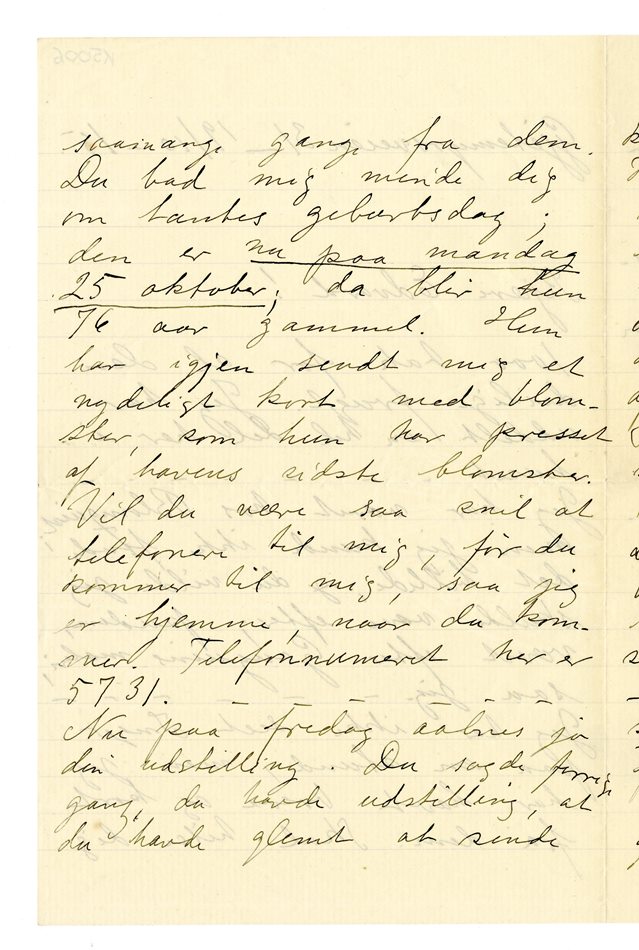 saamange gange fra dem.
Du bad mig minde dig
om tantes gebursdag;
den er nu paa mandag
25 oktober; da blir hun
76 aar gammel. Hun
har igjen sendt mig et
nydeligt kort med blom-
ster, som hun har presset
af havens sidste blomster.
Vil du være saa snil at
telefonere til mig, før du
kommer til mig, saa jeg
er hjemme, naar du kom-
mer. Telefonnumeret her er
5731. – – – – – –
Nu paa fredag aabnes jo
din udstilling. Du sagde forrige
gang, du havde udstilling, at
du havde glemt at sende